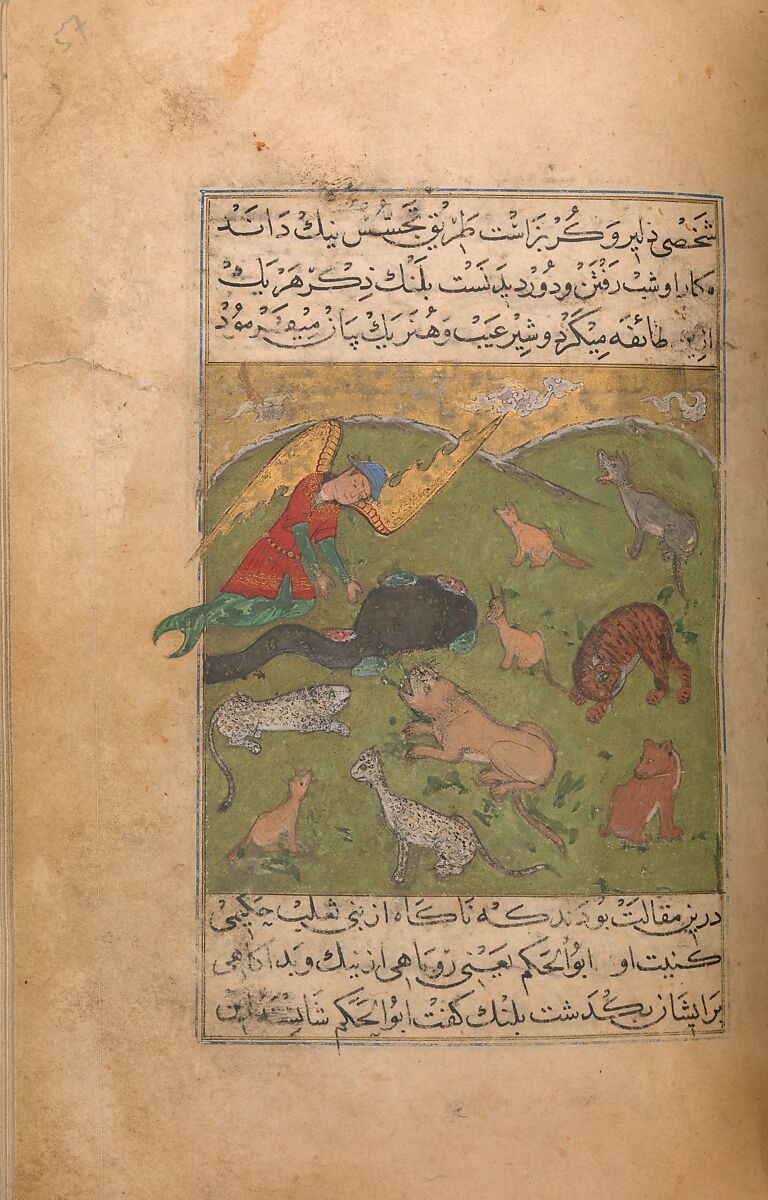 57
شخصی دلیر و کربز است طریق تجسس نیک داند
و کار او شب رفتن و دور دیدنست بلنک ذکر هر یک
از طائفه میکرد و شیر عیب و هنر یک بیان میفرمود
درین مقالت بودند که ناکاه از بنی ثعلب حکیمی
کنیت او ابوالحکم یعنی روباهی از نیک و بد آکاهی
برایشان بکذشت بلنک کفت ابوالحکم شایسته این